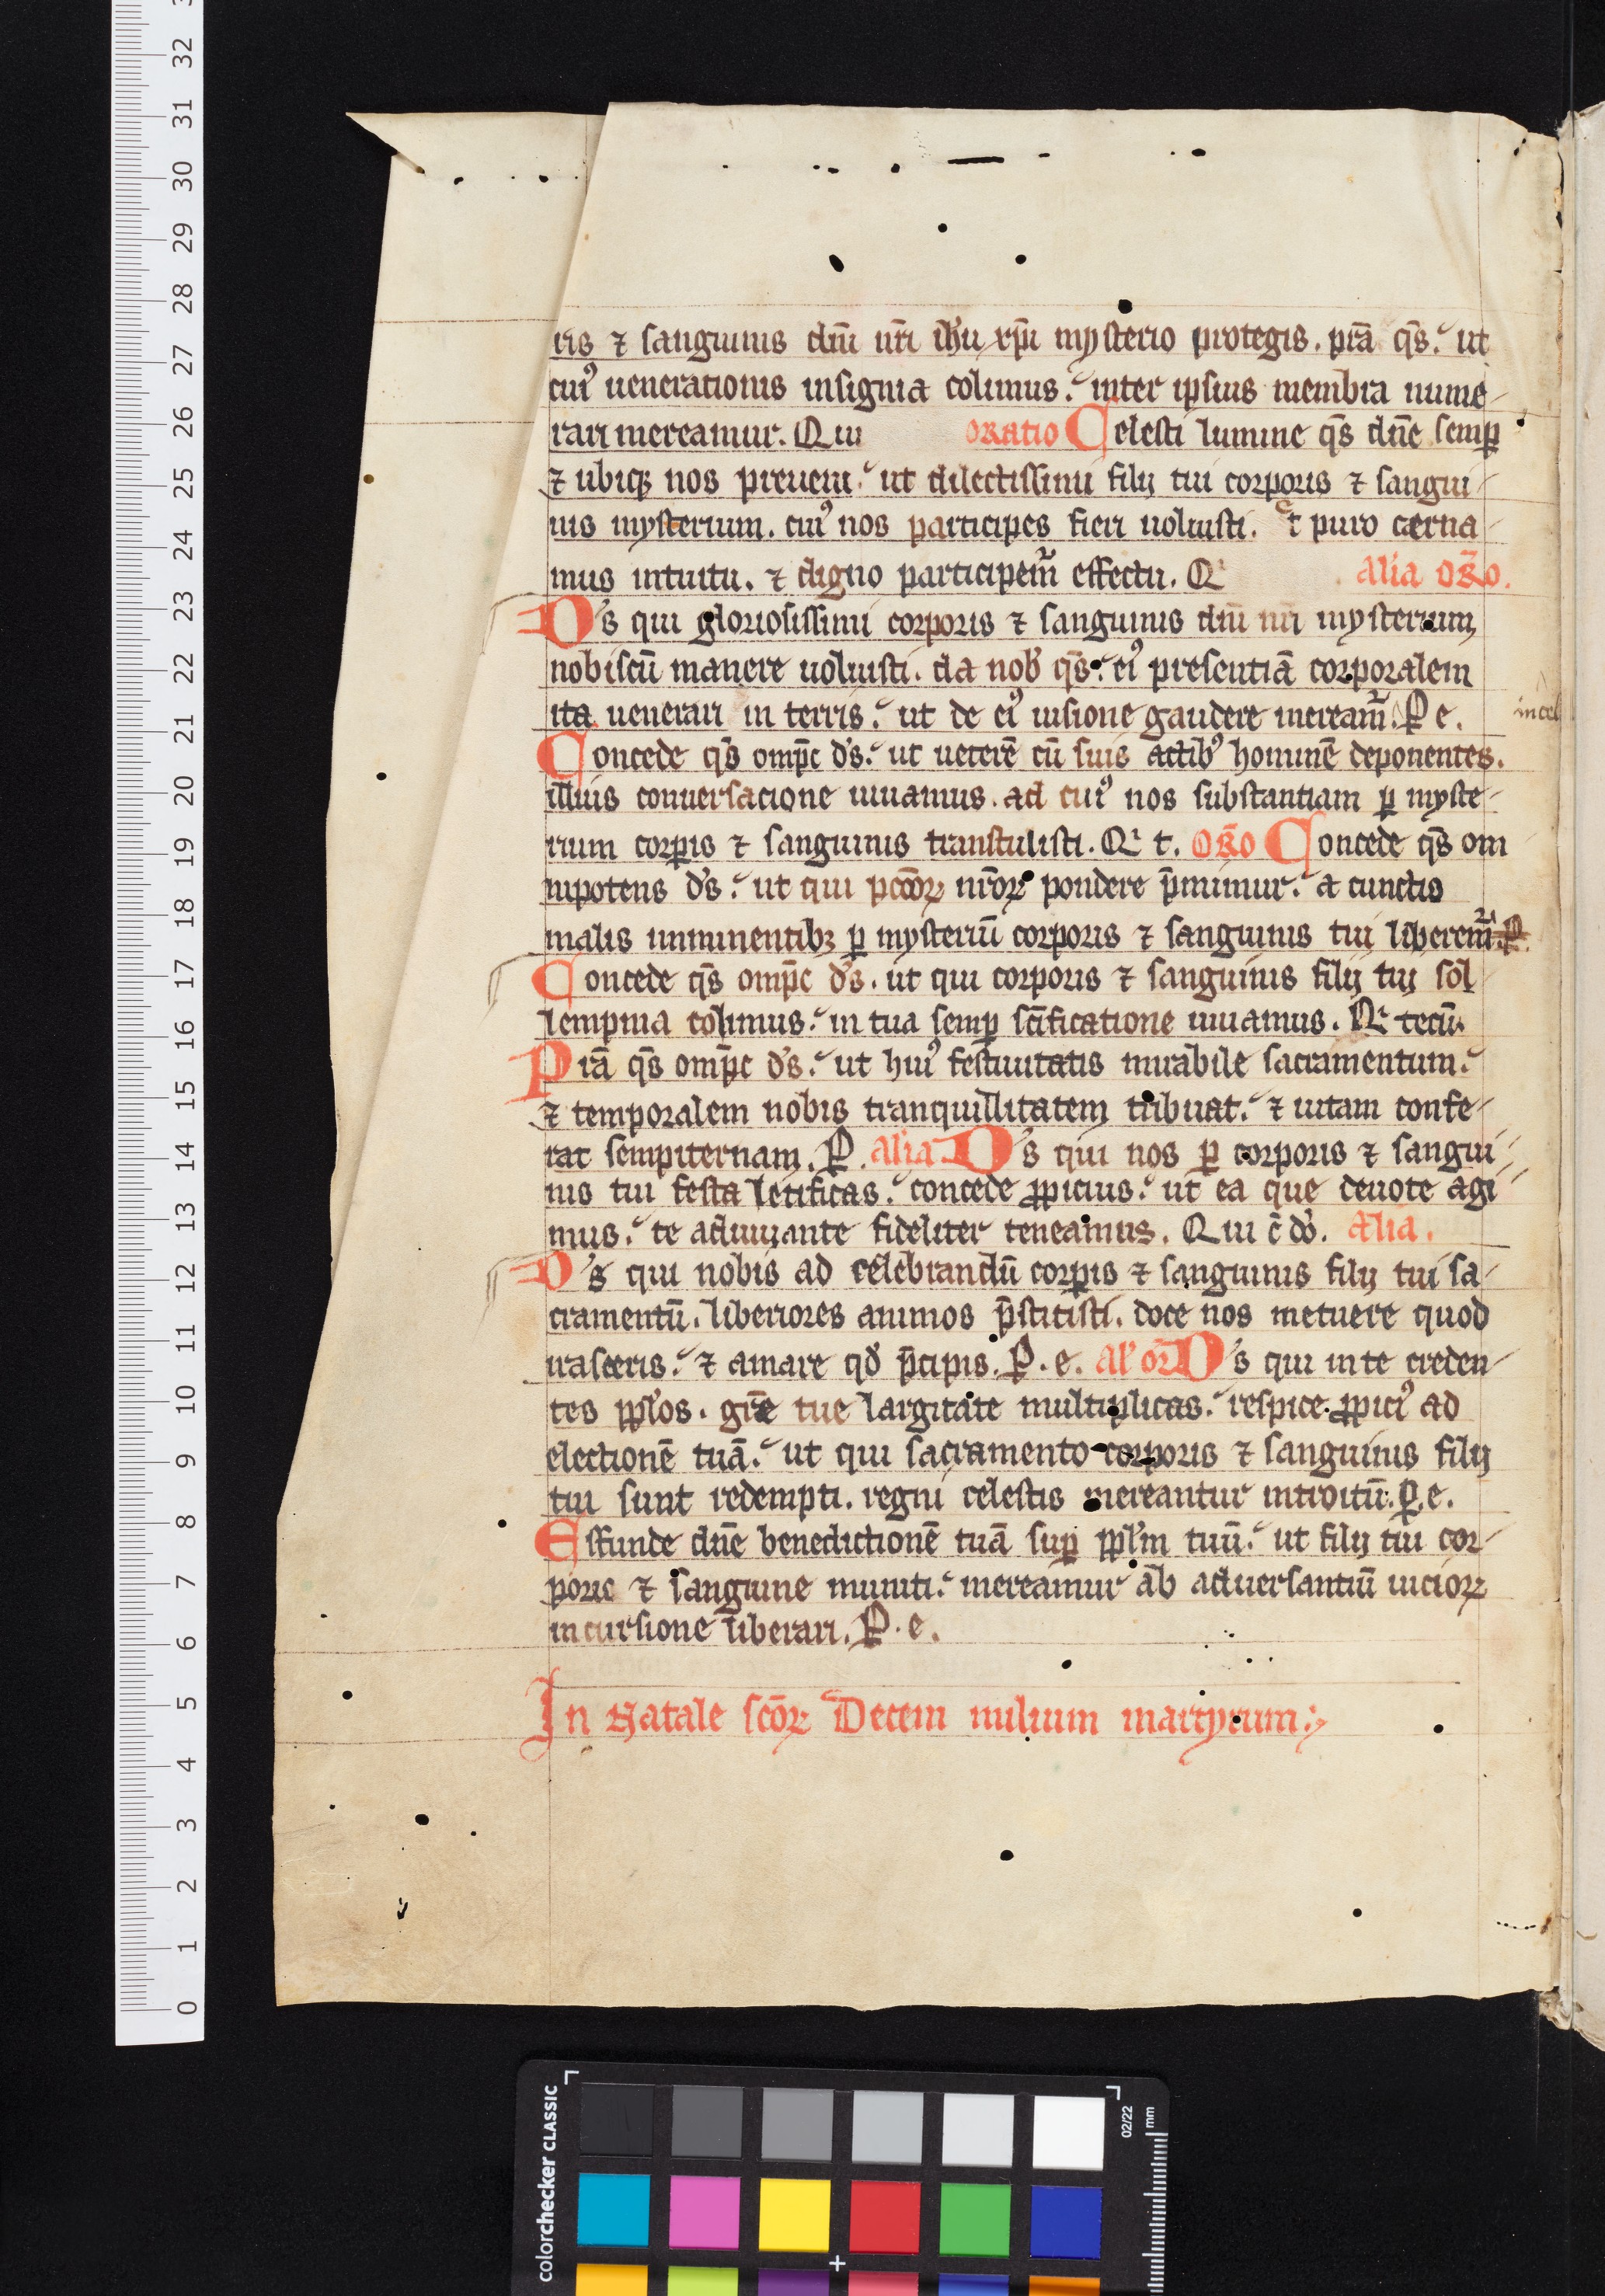 ris ⁊ sanguinis dn̄i nr̄i ih̄u xp̄i mysterio protegis. pr̄a qs̄. ut
cuiꝰ uenerationis insignia colimus. inter ipsius membra nume
rari mereamur. Qui oratio Celesti lumine qs̄ dn̄e semꝑ
⁊ ubiqꝫ nos preueni. ut dilectissimi filij tui corporis ⁊ sangui
nis mysterium. cuiꝰ nos participes fieri uoluisti. et puro cerna
mus intuitu. ⁊ digno participemur effectu. Q alia oro.
D's qui gloriosissimi corporis ⁊ sanguinis dn̄i nr̄i mysterium
nobiscū manere uoluisti. da nob' qs̄. eiꝰ presentiā corporalem
ita uenerari in terris. ut de eiꝰ uisione gaudere meream̄. P e. in cel
Concede qs̄ omp̄c d's. ut ueterē cū suis actibꝰ hominē deponentes.
illius conuersacione uiuamus. ad cuiꝰ nos substantiam ꝑ myste
rium corꝑis ⁊ sanguinis transtulisti. Q t. oro Concede qs̄ om
nipotens d's. ut qui pcc̄oꝝ nr̄oꝝ pondere p̄mimur. a cunctis
malis imminentibꝫ ꝑ mysteriū corporis ⁊ sanguinis tui liberem̄. P.
Concede qs̄ omp̄c d's. ut qui corporis ⁊ sanguinis filij tuj sol
lempnia colimus. in tua semꝑ scīficatione uiuamus. Q tecū.
Prā qs̄ omp̄c d's. ut huiꝰ festiuitatis mirabile sacramentum.
⁊ temporalem nobis tranquillitatem tribuat. ⁊ uitam confe
rat sempiternam. P. alia D's qui nos ꝑ corporis ⁊ sangui
nis tui festa letificas. concede ꝓpicius. ut ea que deuote agi
mus. te adiuuante fideliter teneamus. Qui c̄ d'. Alia.
D's qui nobis ad celebrandū corꝑis ⁊ sanguinis filij tui sa
cramentū. liberiores animos p̄stitisti. doce nos metuere quod
irasceris. ⁊ amare qd' p̄cipis. P. e. al' or D's qui in te creden
tes ppl'os. gr̄e tue largitate multiplicas. respice ꝓpiciꝰ ad
electionē tuā. ut qui sacramento corporis ⁊ sanguinis filij
tui sunt redempti. regni celestis mereantur introitū. P. e.
Effunde dn̄e benedictionē tuā suꝑ ppl'm tuū. ut filij tui cor
poris ⁊ sanguine muniti. mereamur ab aduersantiū uicioꝝ
incursione liberari. P. e.
In Natale scōꝝ Decem milium martyrum
32
31
30
29
28
27
26
25
24
23
22
21
20
19
18
17
16
15
14
13
12
11
10
9
8
7
6
5
4
3
2
1
0
colorchecker CLASSIC
02/22
mm